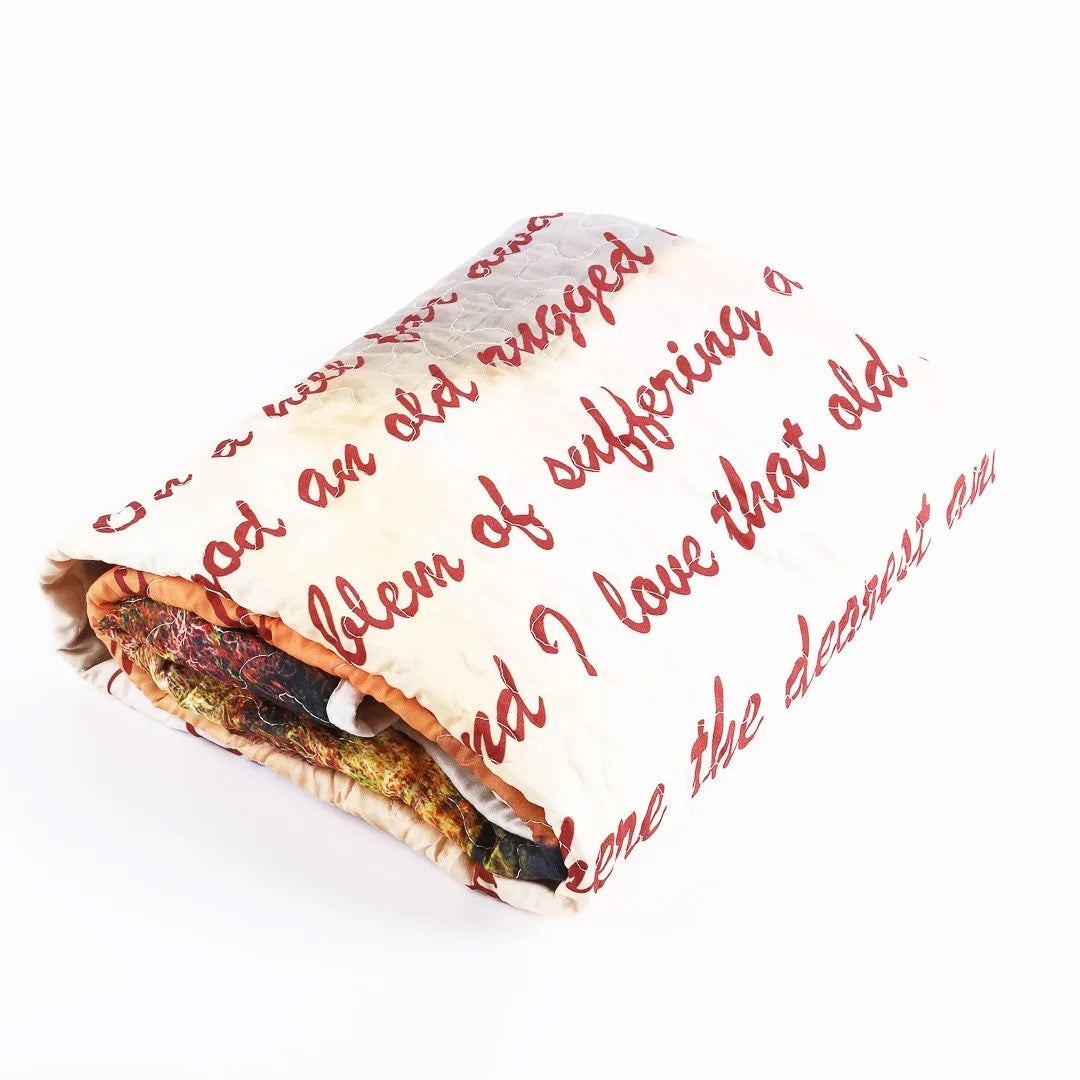 On a hill far awa
ood an old rugged
blem of suffering a
nd I love that old
ere the dearest an